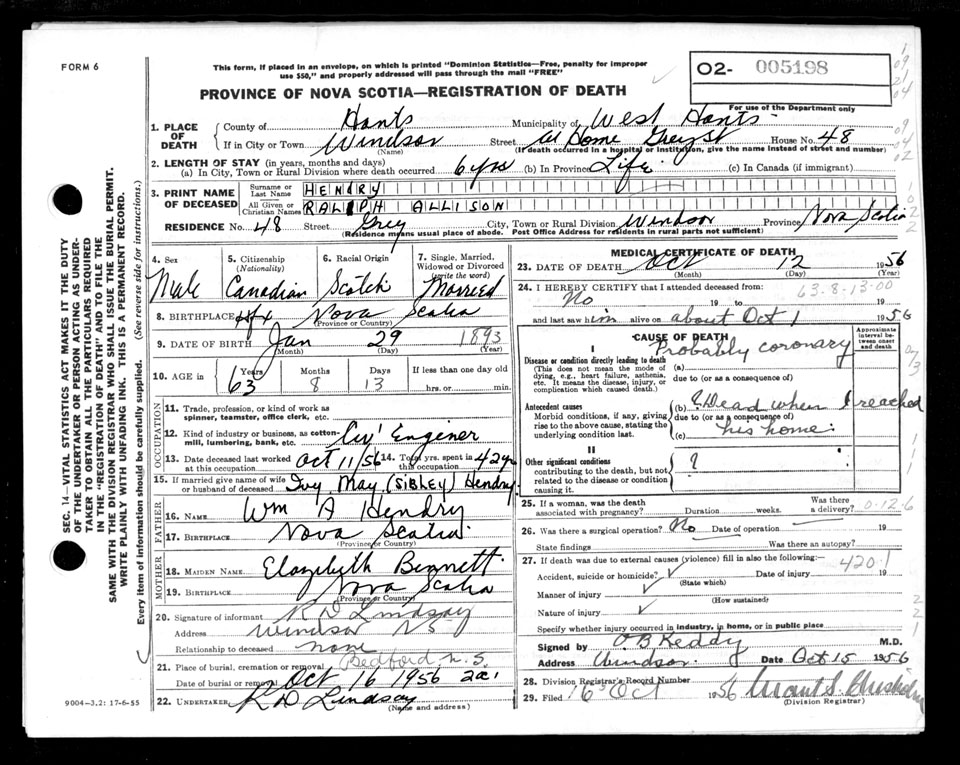 FORM 6
This form, if placed in an envelope, on which is printed "Dominion Statistics—Free, penalty for improper
use $50," and properly addressed will pass through the mail "FREE"
O2- 005198
PROVINCE OF NOVA SCOTIA—REGISTRATION OF DEATH
For use of the Department only
1. PLACE OF DEATH County of Hants Municipality of West Hants
If in City or Town Windsor Street at Home Grey St House No. 48
(Name) (If death occurred in a hospital or institution, give the name instead of street and number)
2. LENGTH OF STAY (in years, months and days)
(a) In City, Town or Rural Division where death occurred 6 yrs (b) In Province Life (c) In Canada (if immigrant)
3. PRINT NAME OF DECEASED Surname or Last Name HENDRY
All Given or Christian Names RALPH ALLISON
RESIDENCE No. 48 Street Grey City, Town or Rural Division Windsor Province Nova Scotia
(Residence means usual place of abode. Post Office Address for residents in rural parts not sufficient)
4. Sex 5. Citizenship (Nationality) 6. Racial Origin 7. Single, Married, Widowed or Divorced (write the word)
Male Canadian Scotch Married
8. BIRTHPLACE Hfx Nova Scotia
(Province or Country)
9. DATE OF BIRTH Jan 29 1893
(Month) (Day) (Year)
10. AGE in Years Months Days If less than one day old
63 8 13 hrs. or min.
OCCUPATION
11. Trade, profession, or kind of work as
spinner, teamster, office clerk, etc.
12. Kind of industry or business, as cotton-
mill, lumbering, bank, etc. Civ' Enginer
13. Date deceased last worked at this occupation Oct 11/56 14. Total yrs. spent in this occupation 42 yrs
15. If married give name of wife
or husband of deceased Ivy May (SIBLEY) Hendry
FATHER
16. NAME Wm A Hendry
17. BIRTHPLACE Nova Scotia
(Province or Country)
MOTHER
18. MAIDEN NAME Elazibeth Bennett
19. BIRTHPLACE Nova Scotia
(Province or Country)
20. Signature of informant R D Lindsay
Address Windsor NS
Relationship to deceased none
21. Place of burial, cremation or removal Bedford N.S.
Date of burial or removal Oct 16 1956
22. UNDERTAKER R D Lindsay
(Name and address)
9004-3,2: 17-6-55
SEC. 14—VITAL STATISTICS ACT MAKES IT THE DUTY
OF THE UNDERTAKER OR PERSON ACTING AS UNDER-
TAKER TO OBTAIN ALL THE PARTICULARS REQUIRED
IN THE "REGISTRATION OF DEATH" AND TO FILE THE
SAME WITH THE DIVISION REGISTRAR WHO SHALL ISSUE THE BURIAL PERMIT.
WRITE PLAINLY WITH UNFADING INK. THIS IS A PERMANENT RECORD.
Every item of information should be carefully supplied. (See reverse side for instructions.)
MEDICAL CERTIFICATE OF DEATH
23. DATE OF DEATH Oct 12 1956
(Month) (Day) (Year)
24. I HEREBY CERTIFY that I attended deceased from: 63-8-13-00
No 19 to 19
and last saw him alive on about Oct 1 1956
CAUSE OF DEATH
Approximate interval between onset and death
I
Disease or condition directly leading to death
(This does not mean the mode of
dying, e.g., heart failure, asthenia,
etc. It means the disease, injury, or
complication which caused death.)
(a) Probably coronary
due to (or as a consequence of)
Antecedent causes
Morbid conditions, if any, giving
rise to the above cause, stating the
underlying condition last.
(b) ? Dead when I reached
due to (or as a consequence of)
(c) his home.
II
Other significant conditions
contributing to the death, but not
related to the disease or condition
causing it.
?
25. If a woman, was the death associated with pregnancy? Duration weeks. Was there a delivery? 0-12-6
26. Was there a surgical operation? No Date of operation 19
State findings Was there an autopsy?
27. If death was due to external causes (violence) fill in also the following: 420.1
Accident, suicide or homicide? Date of injury 19
(State which)
Manner of injury
(How sustained)
Nature of injury
Specify whether injury occurred in industry, in home, or in public place
Signed by O B Keddy M.D.
Address Windsor. Date Oct 15 1956
28. Division Registrar's Record Number
29. Filed 16 Oct 1956
(Division Registrar)